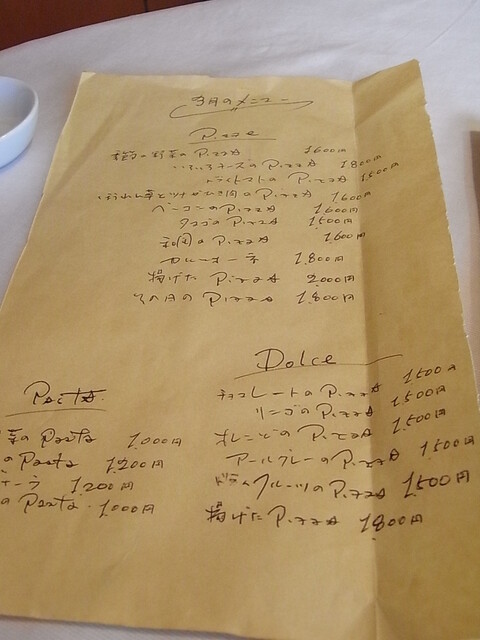 3月のメニュー
Pizze
季節の野菜のPizza 1600円
いろいろチーズのPizza 1800円
ドライトマトのPizza 1500円
のPizza 1600円
ベーコンのPizza 1600円
タマゴのPizza 1500円
和風のPizza 1600円
カルツォーネ 1,800円
揚げたPizza 2000円
その日のPizza 1,800円
Pasta
菜のPasta 1,000円
のPasta 1,200円
ナーラ 1,200円
のPasta 1000円
Dolce
チョコレートのPizza 1500円
リンゴのPizza 1500円
オレンジのPizza 1,500円
アールグレーのPizza 1,500円
ドライフルーツのPizza 1,500円
揚げたPizza 1,800円